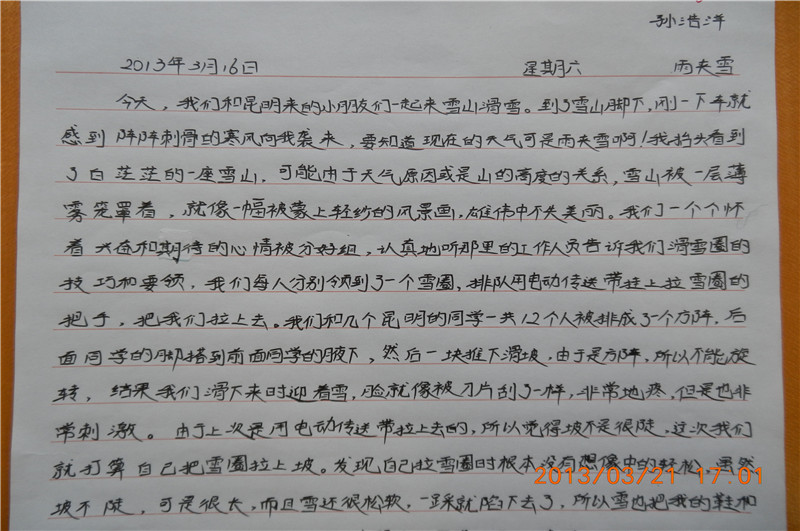 孙浩洋
2013年3月16日 星期六 雨夹雪
今天，我们和昆明来的小朋友们一起来雪山滑雪。到了雪山脚下，刚一下车就
感到阵阵刺骨的寒风向我袭来，要知道现在的天气可是雨夹雪啊！我抬头看到
了白茫茫的一座雪山，可能由于天气原因或是山的高度的关系，雪山被一层薄
雾笼罩着，就像一幅被蒙上轻纱的风景画，雄伟中不失美丽。我们一个个怀
着兴奋和期待的心情被分好组，认真地听那里的工作人员告诉我们滑雪圈的
技巧和要领，我们每人分别领到了一个雪圈，排队用电动传送带挂上拉雪圈的
把手，把我们拉上去。我们和几个昆明的同学一共12个人被排成了一个方阵，后
面同学的脚搭到前面同学的腋下，然后一块推下滑坡，由于是方阵，所以不能旋
转，结果我们滑下来时迎着雪，脸就像被刀片刮了一样，非常地疼，但是也非
常刺激。由于上次是用电动传送带拉上去的，所以觉得坡不是很陡，这次我们
就打算自己把雪圈拉上坡。发现自己拉雪圈时根本没有想像中的轻松，虽然
坡不陡，可是很长，而且雪还很松软，一踩就陷下去了，所以雪也把我的鞋和
2013/03/21 17:01